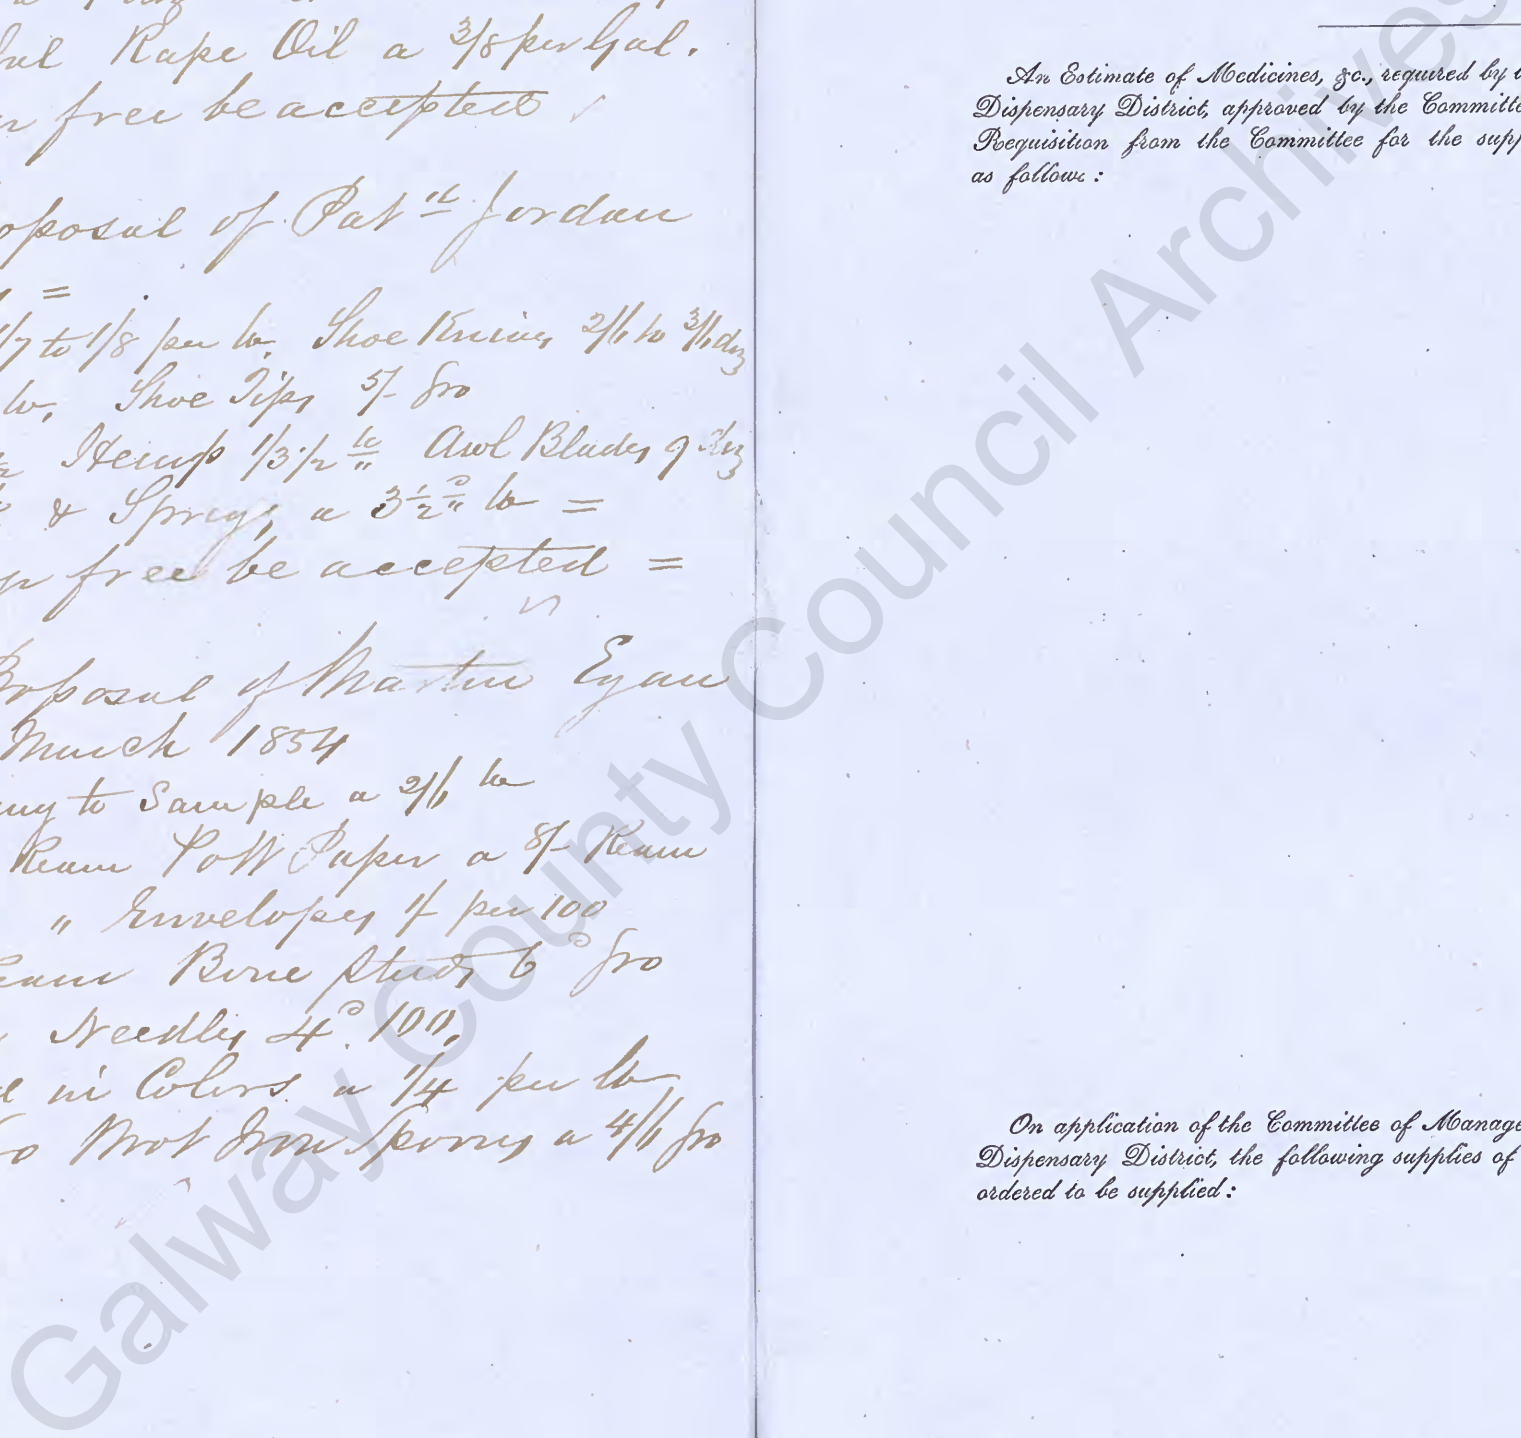 Rape Oil a 3/8 per Gal.
free be accepted
oposal of Patk Jordan
=
1/7 to 1/8 per lb, Shoe Knives 2/6 to 3/6 doz
lb, Shoe Tips 5/- Gro
Hemp 1/3 1/2 lb Awl Blades 9 doz
& Sprigs a 3 1/2 D lb =
free be accepted =
Proposal of Martin Egan
March 1854
ing to Sample a 2/6 lb
Ream Post Paper a 8/- Ream
" Envelopes 1/- per 100
Bone Studs 6D Gro
Needles 4D. 100,
in Colors a 1/4 per lb
Wrot Iron Spoons a 4/6 Gro
An Estimate of Medicines, &c., required by t
Dispensary District, approved by the Committe
Requisition from the Committee for the supp
as follows:
On application of the Committee of Manage
Dispensary District, the following supplies of
ordered to be supplied:
Galway County Council Archives